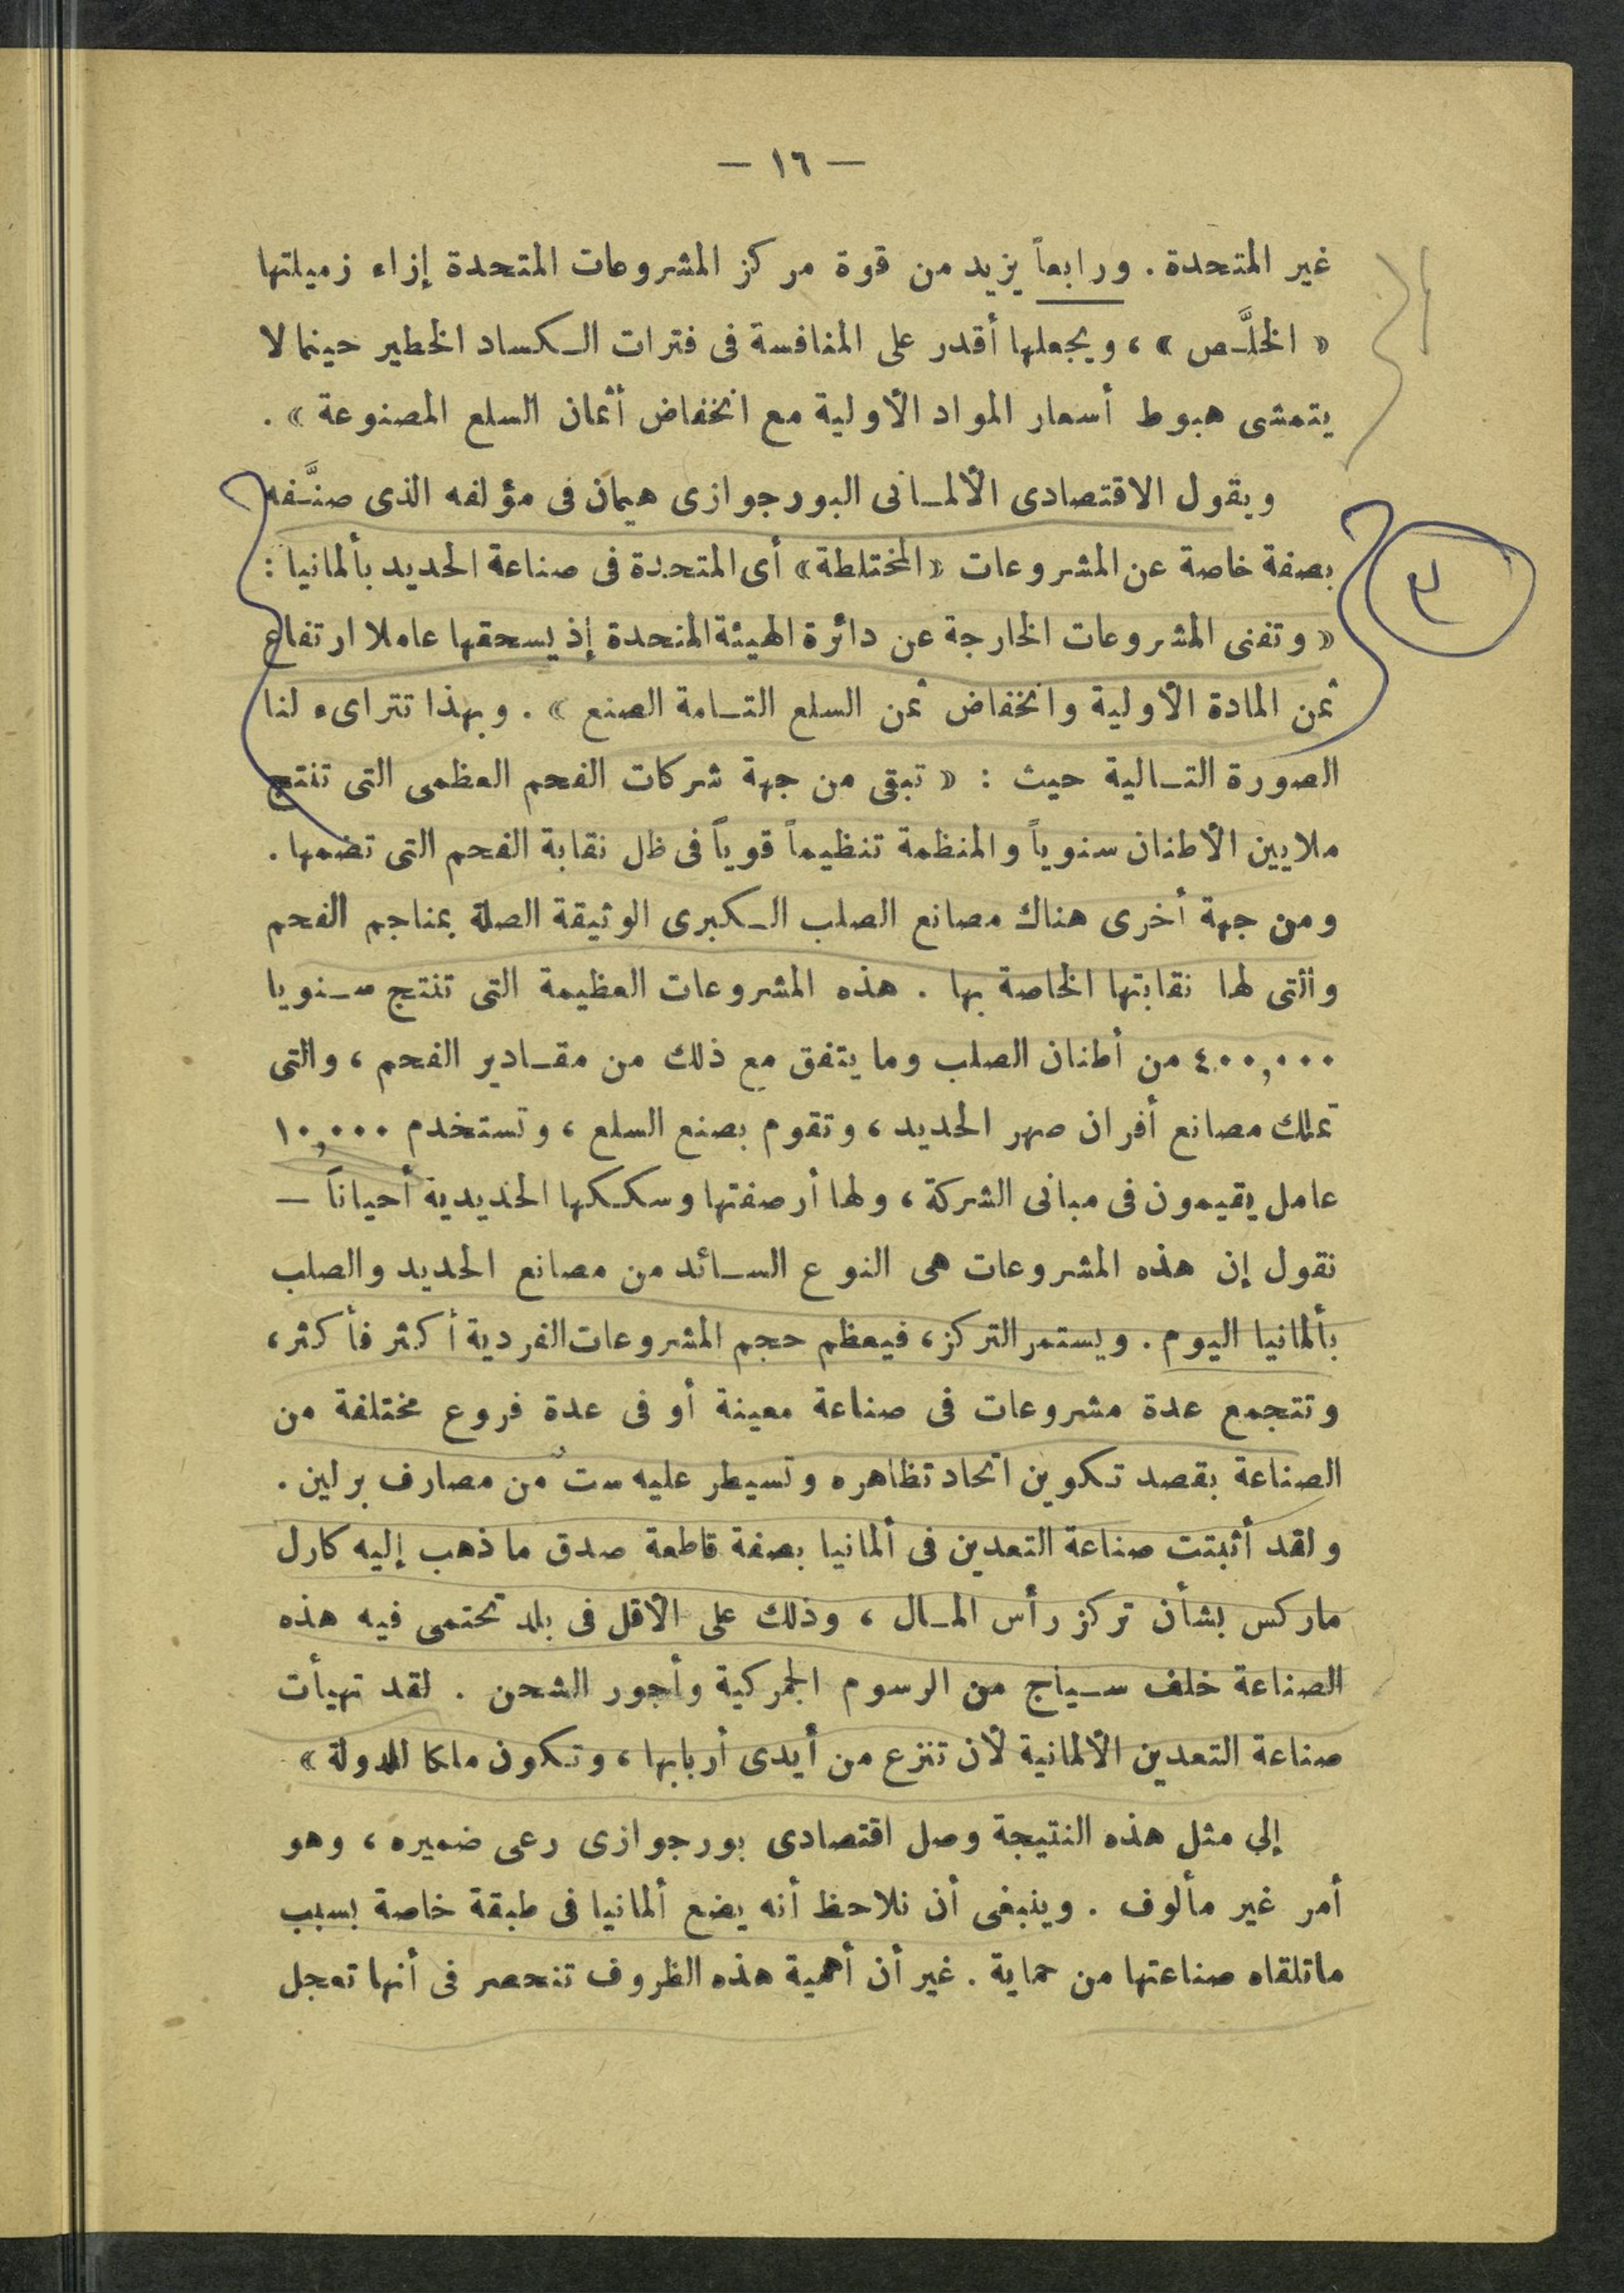 — ١٦ —
غير المتحدة . ورابعاً يزيد من قوة مركز المشروعات المتحدة إزاء زميلتها
« الخلَّص » ، ويجعلها أقدر على المنافسة فى فترات الكساد الخطير حينما لا
يتمشى هبوط أسعار المواد الأولية مع انخفاض أثمان السلع المصنوعة » .
ويقول الاقتصادى الألمانى البورجوازى هيمان فى مؤلفه الذى صنَّفه
بصفة خاصة عن المشروعات « المختلطة » أى المتحدة فى صناعة الحديد بألمانيا :
« وتفنى المشروعات الخارجة عن دائرة الهيئة المتحدة إذ يسحقها عاملا ارتفاع
ثمن المادة الأولية وانخفاض ثمن السلع التامة الصنع » . وبهذا تتراىء لنا
الصورة التالية حيث : « تبقى من جهة شركات الفحم العظمى التى تنتج
ملايين الأطنان سنوياً والمنظمة تنظيماً قوياً فى ظل نقابة الفحم التى تضمها .
ومن جهة أخرى هناك مصانع الصلب الكبرى الوثيقة الصلة بمناجم الفحم
والتى لها نقابتها الخاصة بها . هذه المشروعات العظيمة التى تنتج سنويا
٤٠٠,٠٠٠ من أطنان الصلب وما يتفق مع ذلك من مقادير الفحم ، والتى
تملك مصانع أفران صهر الحديد ، وتقوم بصنع السلع ، وتستخدم ١٠,٠٠٠
عامل يقيمون فى مبانى الشركة ، ولها أرصفتها وسككها الحديدية أحياناً —
نقول إن هذه المشروعات هى النوع السائد من مصانع الحديد والصلب
بألمانيا اليوم . ويستمر التركز ، فيعظم حجم المشروعات الفردية أكثر فأكثر ،
وتتجمع عدة مشروعات فى صناعة معينة أو فى عدة فروع مختلفة من
الصناعة بقصد تكوين اتحاد تظاهره وتسيطر عليه ستٌ من مصارف برلين .
ولقد أثبتت صناعة التعدين فى ألمانيا بصفة قاطعة صدق ما ذهب إليه كارل
ماركس بشأن تركز رأس المال ، وذلك على الأقل فى بلد تحتمى فيه هذه
الصناعة خلف سياج من الرسوم الجمركية وأجور الشحن . لقد تهيأت
صناعة التعدين الألمانية لأن تنزع من أيدى أربابها ، وتكون ملكا للدولة »
إلى مثل هذه النتيجة وصل اقتصادى بورجوازى رعى ضميره ، وهو
أمر غير مألوف . وينبغى أن نلاحظ أنه يضع ألمانيا فى طبقة خاصة بسبب
ماتلقاه صناعتها من حماية . غير أن أهمية هذه الظروف تنحصر فى أنها تعجل